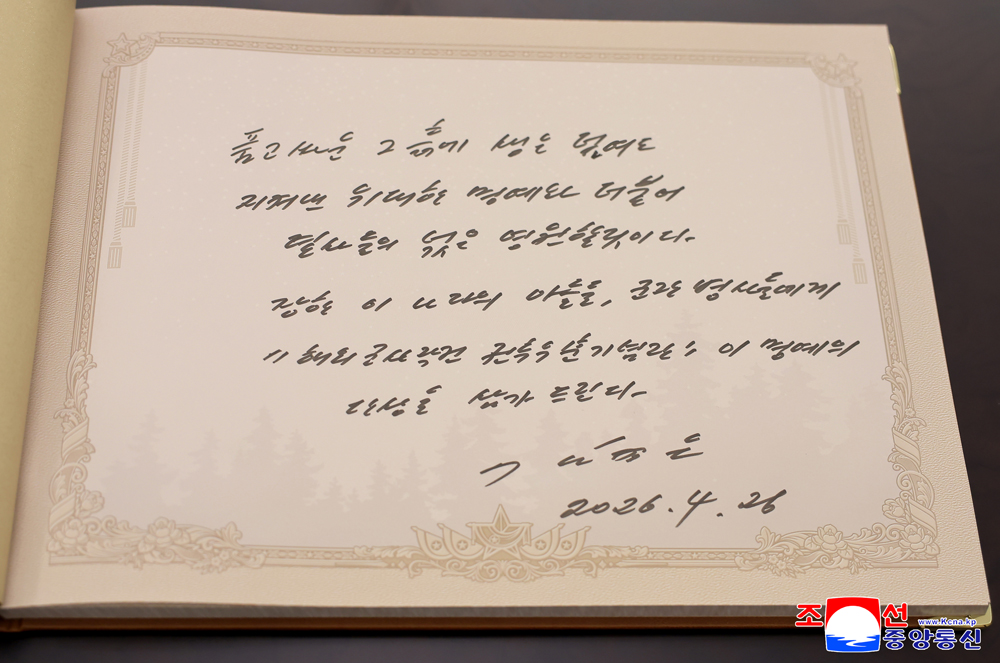 품고 싸운 그 흙에 생은 덮여도
지켜낸 위대한 명예와 더불어
렬사들의 넋은 영원할것이다.
장한 이 나라의 아들들, 군관병사들에게
《해외군사작전 전투위훈기념관》 이 명예의
단상을 삼가 드린다.
김정은
2026.4.26
조선
www.Kcna.kp
중앙통신